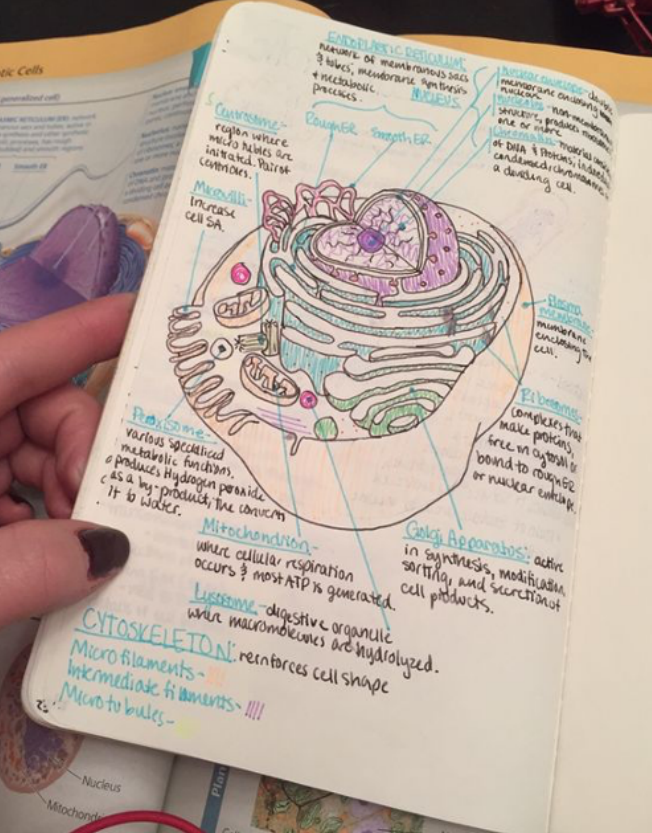 tic Cells
generalized cell)
Smooth ER
ENDOPLASMIC RETICULUM:
network of membranous sacs
& tubes; membrane synthesis
& metabolic
processes.
NUCLEUS
Nuclear envelope - double
membrane enclosing
nucleus.
Nucleolus - non-membranous
structure, produces
one or more
Chromatin - material
of DNA & Proteins;
condensed, chromosomes
a dividing cell.
Rough ER
Smooth ER
Centrosome -
region where
micro tubles are
initiated. Pair of
centrioles.
Microvilli -
Increase
cell SA.
Plasma
membrane:
membrane
enclosing the
cell.
Ribosomes -
complexes that
make proteins,
free in cytosol or
bound to rough ER
or nuclear envelope.
Peroxisome -
various specialized
metabolic functions.
produces Hydrogen peroxide
as a by-product, the convert
it to water.
Mitochondrion -
where cellular respiration
occurs & most ATP is generated.
Golgi Apparatus: active
in synthesis, modification,
sorting, and secretion of
cell products.
Lysosome - digestive organelle
where macromolecules are hydrolyzed.
CYTOSKELETON: reinforces cell shape
Microfilaments -
Intermediate filaments -
Microtubules -
Nucleus
Mitochond
Plan